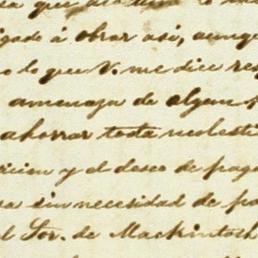 que
igado á obrar asi, aunque
lo que V. me dice res
amenaza de algun
ahorrar toda molesti
icion y el deseo de pag
sin necesidad de pa
el Sor. de Mackintosh